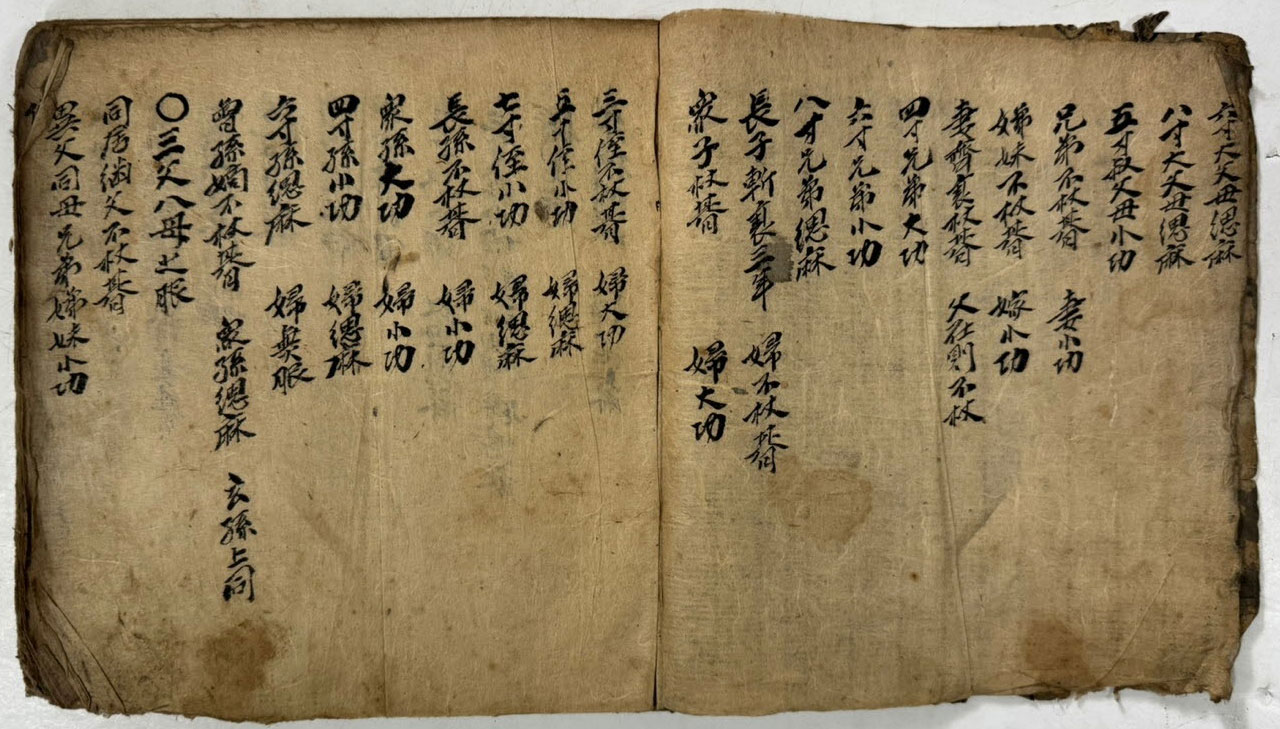 六寸大父母緦麻
八寸大父母緦麻
五寸叔父母小功
兄弟不杖朞 妻小功
姊妹不杖朞 嫁小功
妻齊衰杖朞 父在則不杖
四寸兄弟大功
六寸兄弟小功
八寸兄弟緦麻
長子斬衰三年 婦不杖朞
衆子杖朞 婦大功
三寸侄不杖朞 婦大功
五寸侄小功 婦緦麻
七寸侄小功 婦緦麻
長孫不杖朞 婦小功
衆孫大功 婦小功
四寸孫小功 婦緦麻
六寸孫緦麻 婦無服
曾孫嫡不杖朞 衆孫緦麻 玄孫上同
〇三父八母之服
同居継父不杖朞
異父同母兄弟姊妹小功